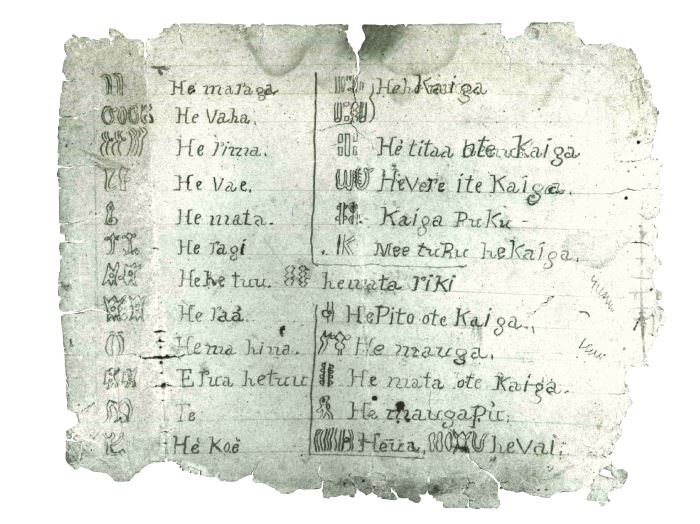 He maraga
He Vaha.
He rima.
He Vae.
He mata.
He ragi
He he tuu. he mata riki
He raá.
He ma hina.
E rua hetuu
Te
He Koé
Kaiga
He titaa ote Kaiga
He vere ite Kaiga.
Kaiga PuKu -
Mee tuRu he Kaiga.
He Pito ote Kaiga.
He mauga.
He mata ote Kaiga.
He mauga Pu.
He ua, he Vai.